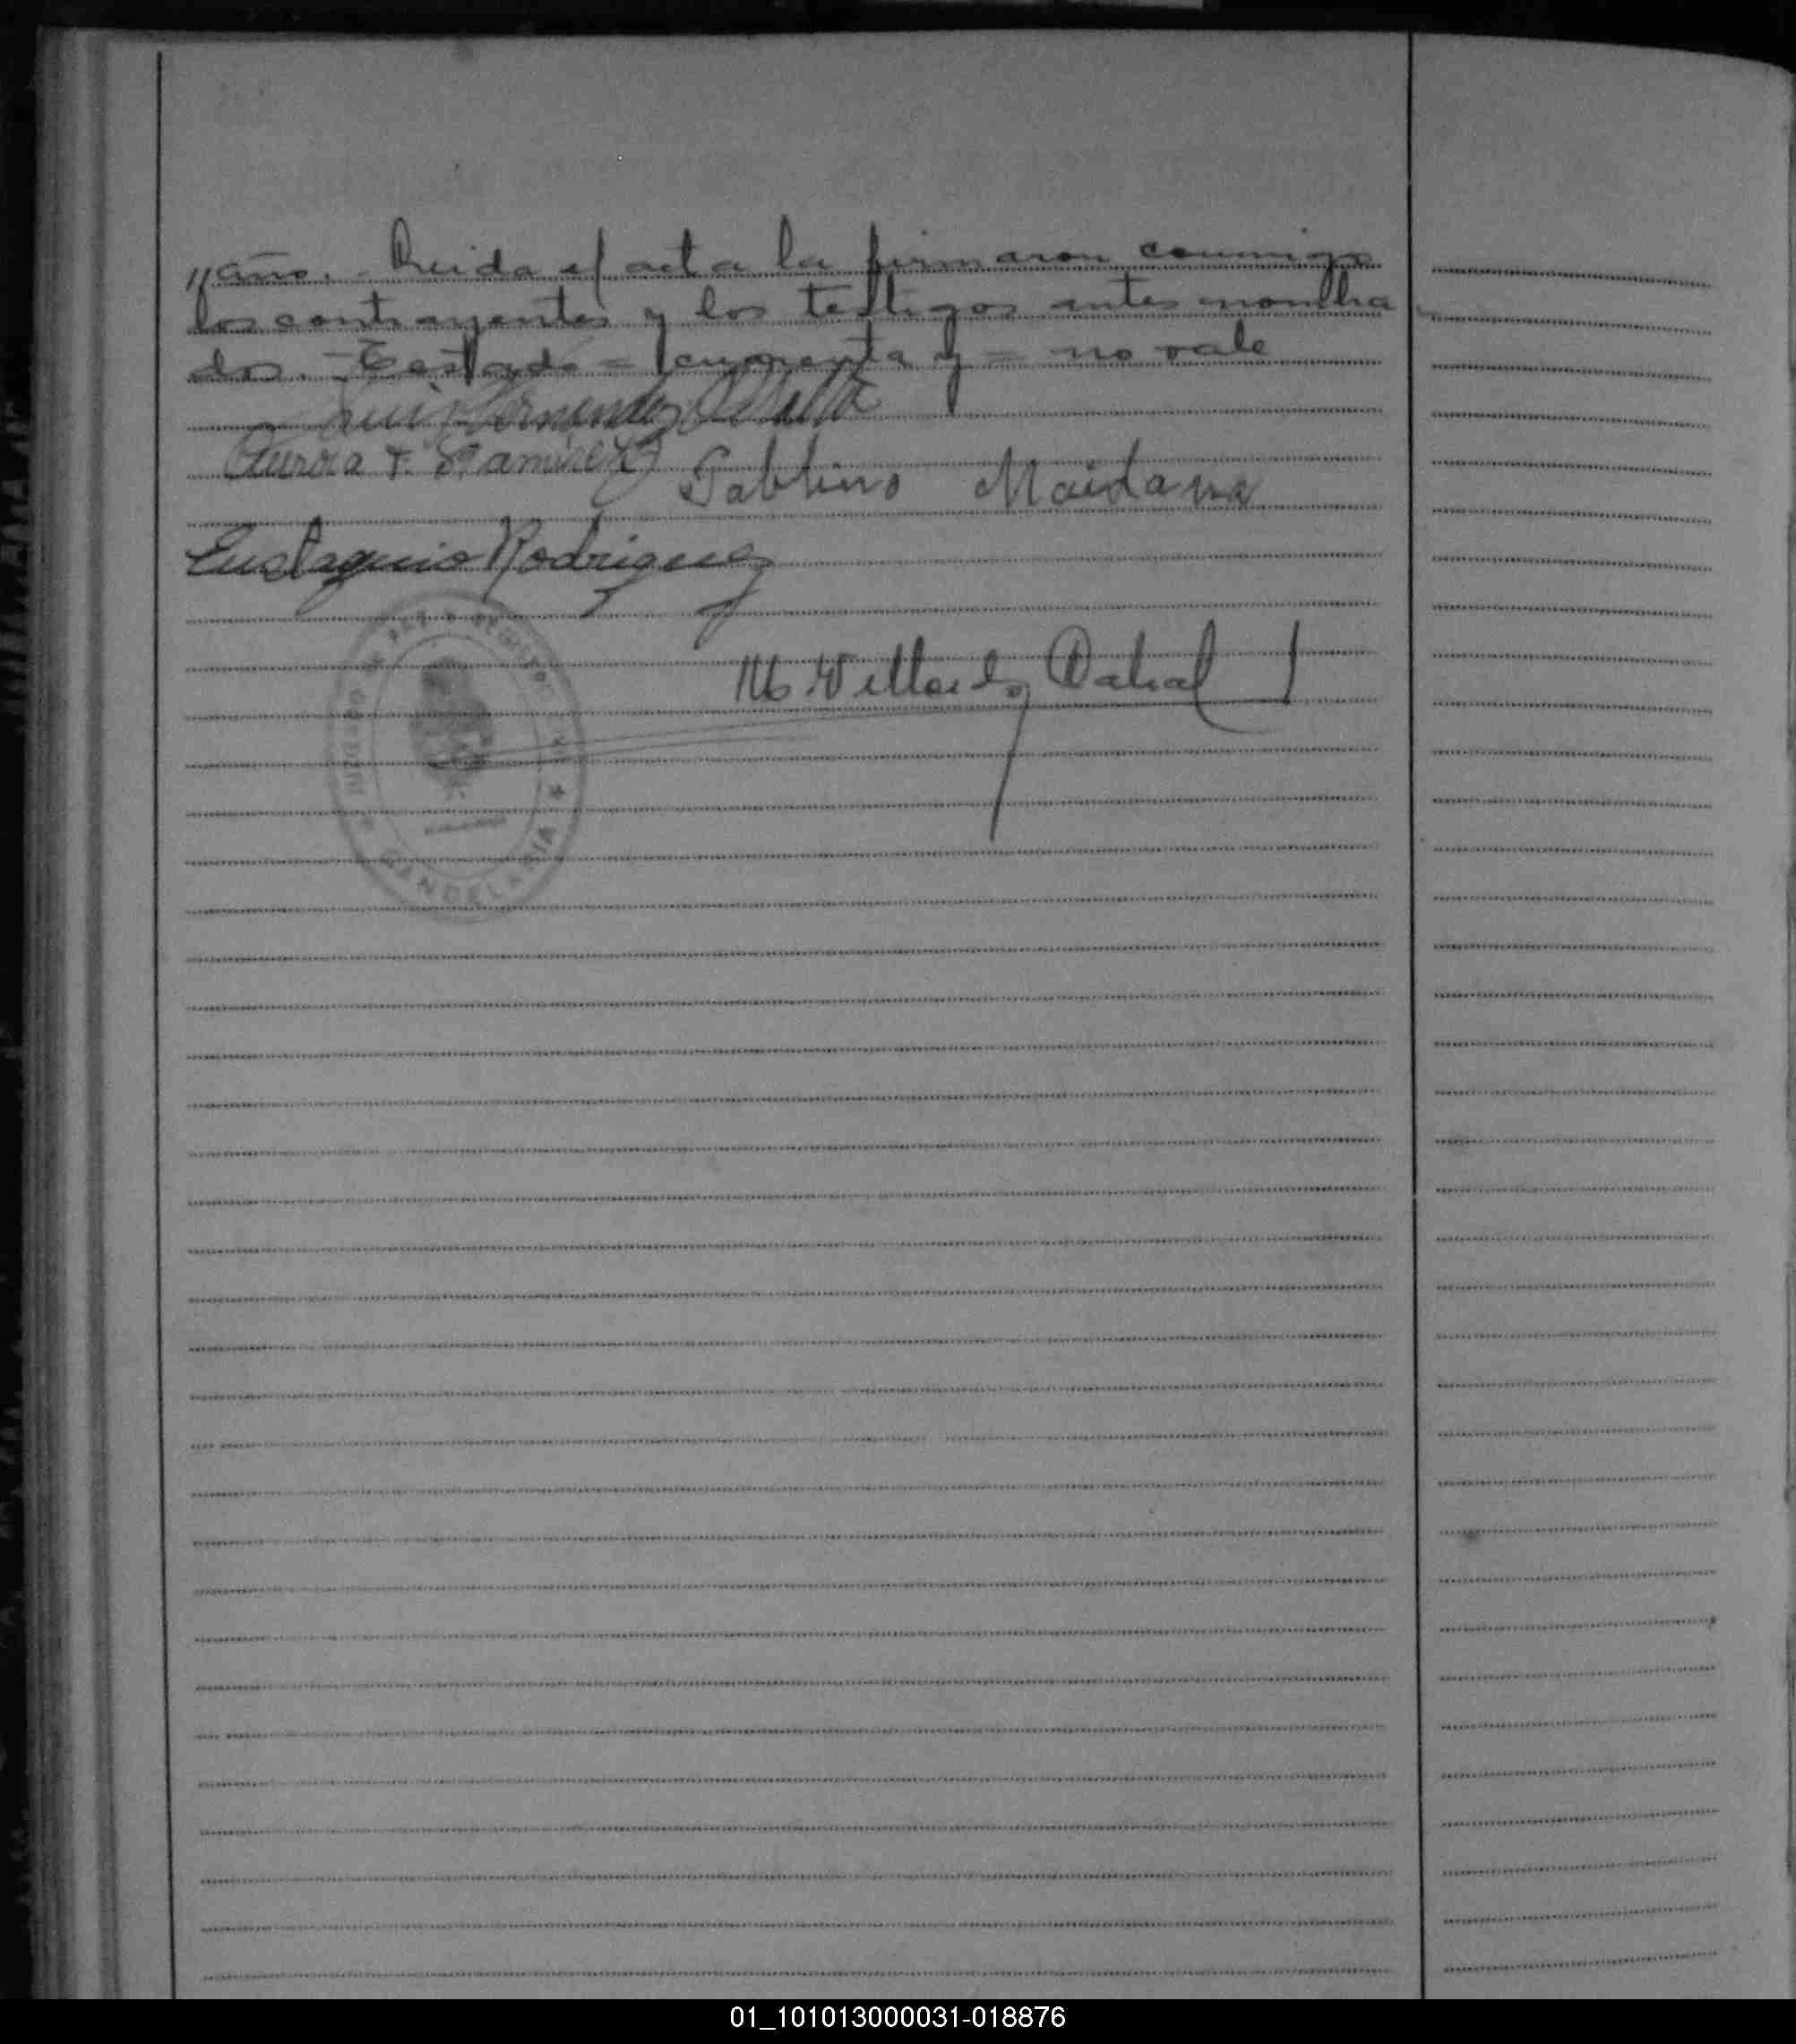 y año. - Leida el acta la firmaron conmigo
los contrayentes y los testigos antes nombra
dos. - Testado = cuarenta y = no vale
Luis Fernandez
Aurora F. Ramirez
Pablino Maidana
Eustaquio Rodriguez
M. Cabral
JUEZ DE PAZ Y REGISTRO
CANDELARIA
01_101013000031-018876